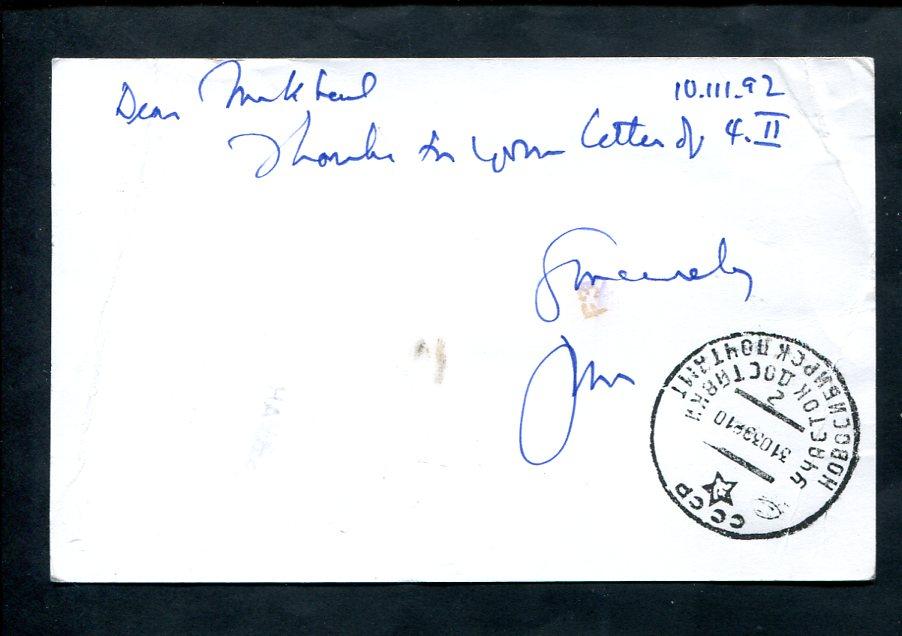 Dear Mikhail
10.III.92
Thanks for your letter of 4.II
Sincerely
Jim
НОВОСИБИРСК ПОЧТАМТ
УЧАСТОК ДОСТАВКИ
2
СССР